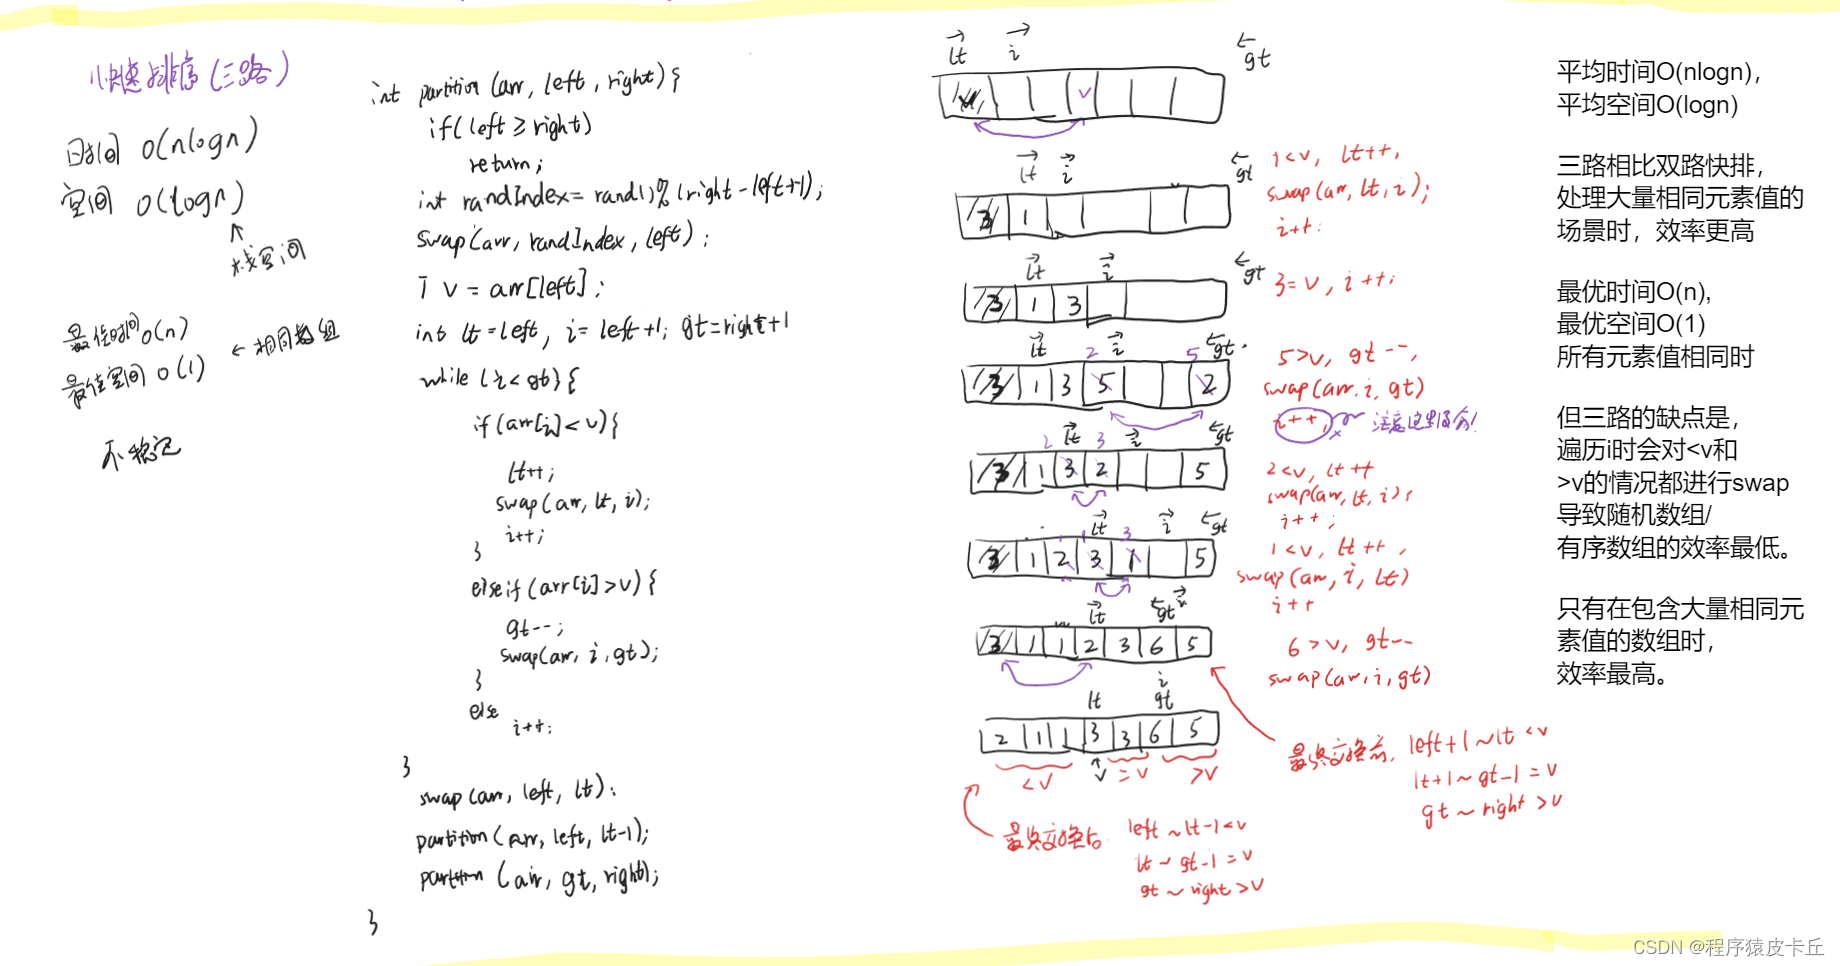 快速排序(三路)
时间 O(nlogn)
空间 O(logn)
栈空间
最佳时间 O(n)
最佳空间 O(1)
← 相同数组
不稳定
int partition (arr, left, right) {
if(left ≥ right)
return;
int randIndex = rand()%(right-left+1);
swap(arr, randIndex, left);
T v = arr[left];
int lt=left, i=left+1; gt=right+1
while (i<gt){
if(arr[i]<v){
lt++;
swap(arr, lt, i);
i++;
}
elseif(arr[i]>v){
gt--;
swap(arr, i, gt);
}
else
i++;
}
swap(arr, left, lt);
partition(arr, left, lt-1);
partition (arr, gt, right);
}
lt i gt
v
lt i gt
3 1
1<v, lt++,
swap(arr, lt, i);
i++;
lt i gt
3 1 3
3=v, i++;
lt 2 i 5 gt
3 1 3 5 2
5>v, gt--,
swap(arr, i, gt)
i++,
注意这里没有!
2 lt 3 i gt
3 1 3 2 5
2<v, lt++
swap(arr, lt, i);
i++;
lt 3 i gt
3 1 2 3 1 5
1<v, lt++,
swap(arr, i, lt)
i++
lt gt i
3 1 1 2 3 6 5
6>v, gt--
swap(arr, i, gt)
i
lt gt
2 1 1 3 3 6 5
<v v =v >v
最终交换前, left+1~lt <v
lt+1~gt-1=v
gt~right >v
最终交换后 left~lt-1<v
lt~gt-1=v
gt~right>v
平均时间O(nlogn),
平均空间O(logn)
三路相比双路快排,
处理大量相同元素值的
场景时，效率更高
最优时间O(n),
最优空间O(1)
所有元素值相同时
但三路的缺点是,
遍历i时会对<v和
>v的情况都进行swap
导致随机数组/
有序数组的效率最低。
只有在包含大量相同元
素值的数组时,
效率最高。
CSDN @程序猿皮卡丘